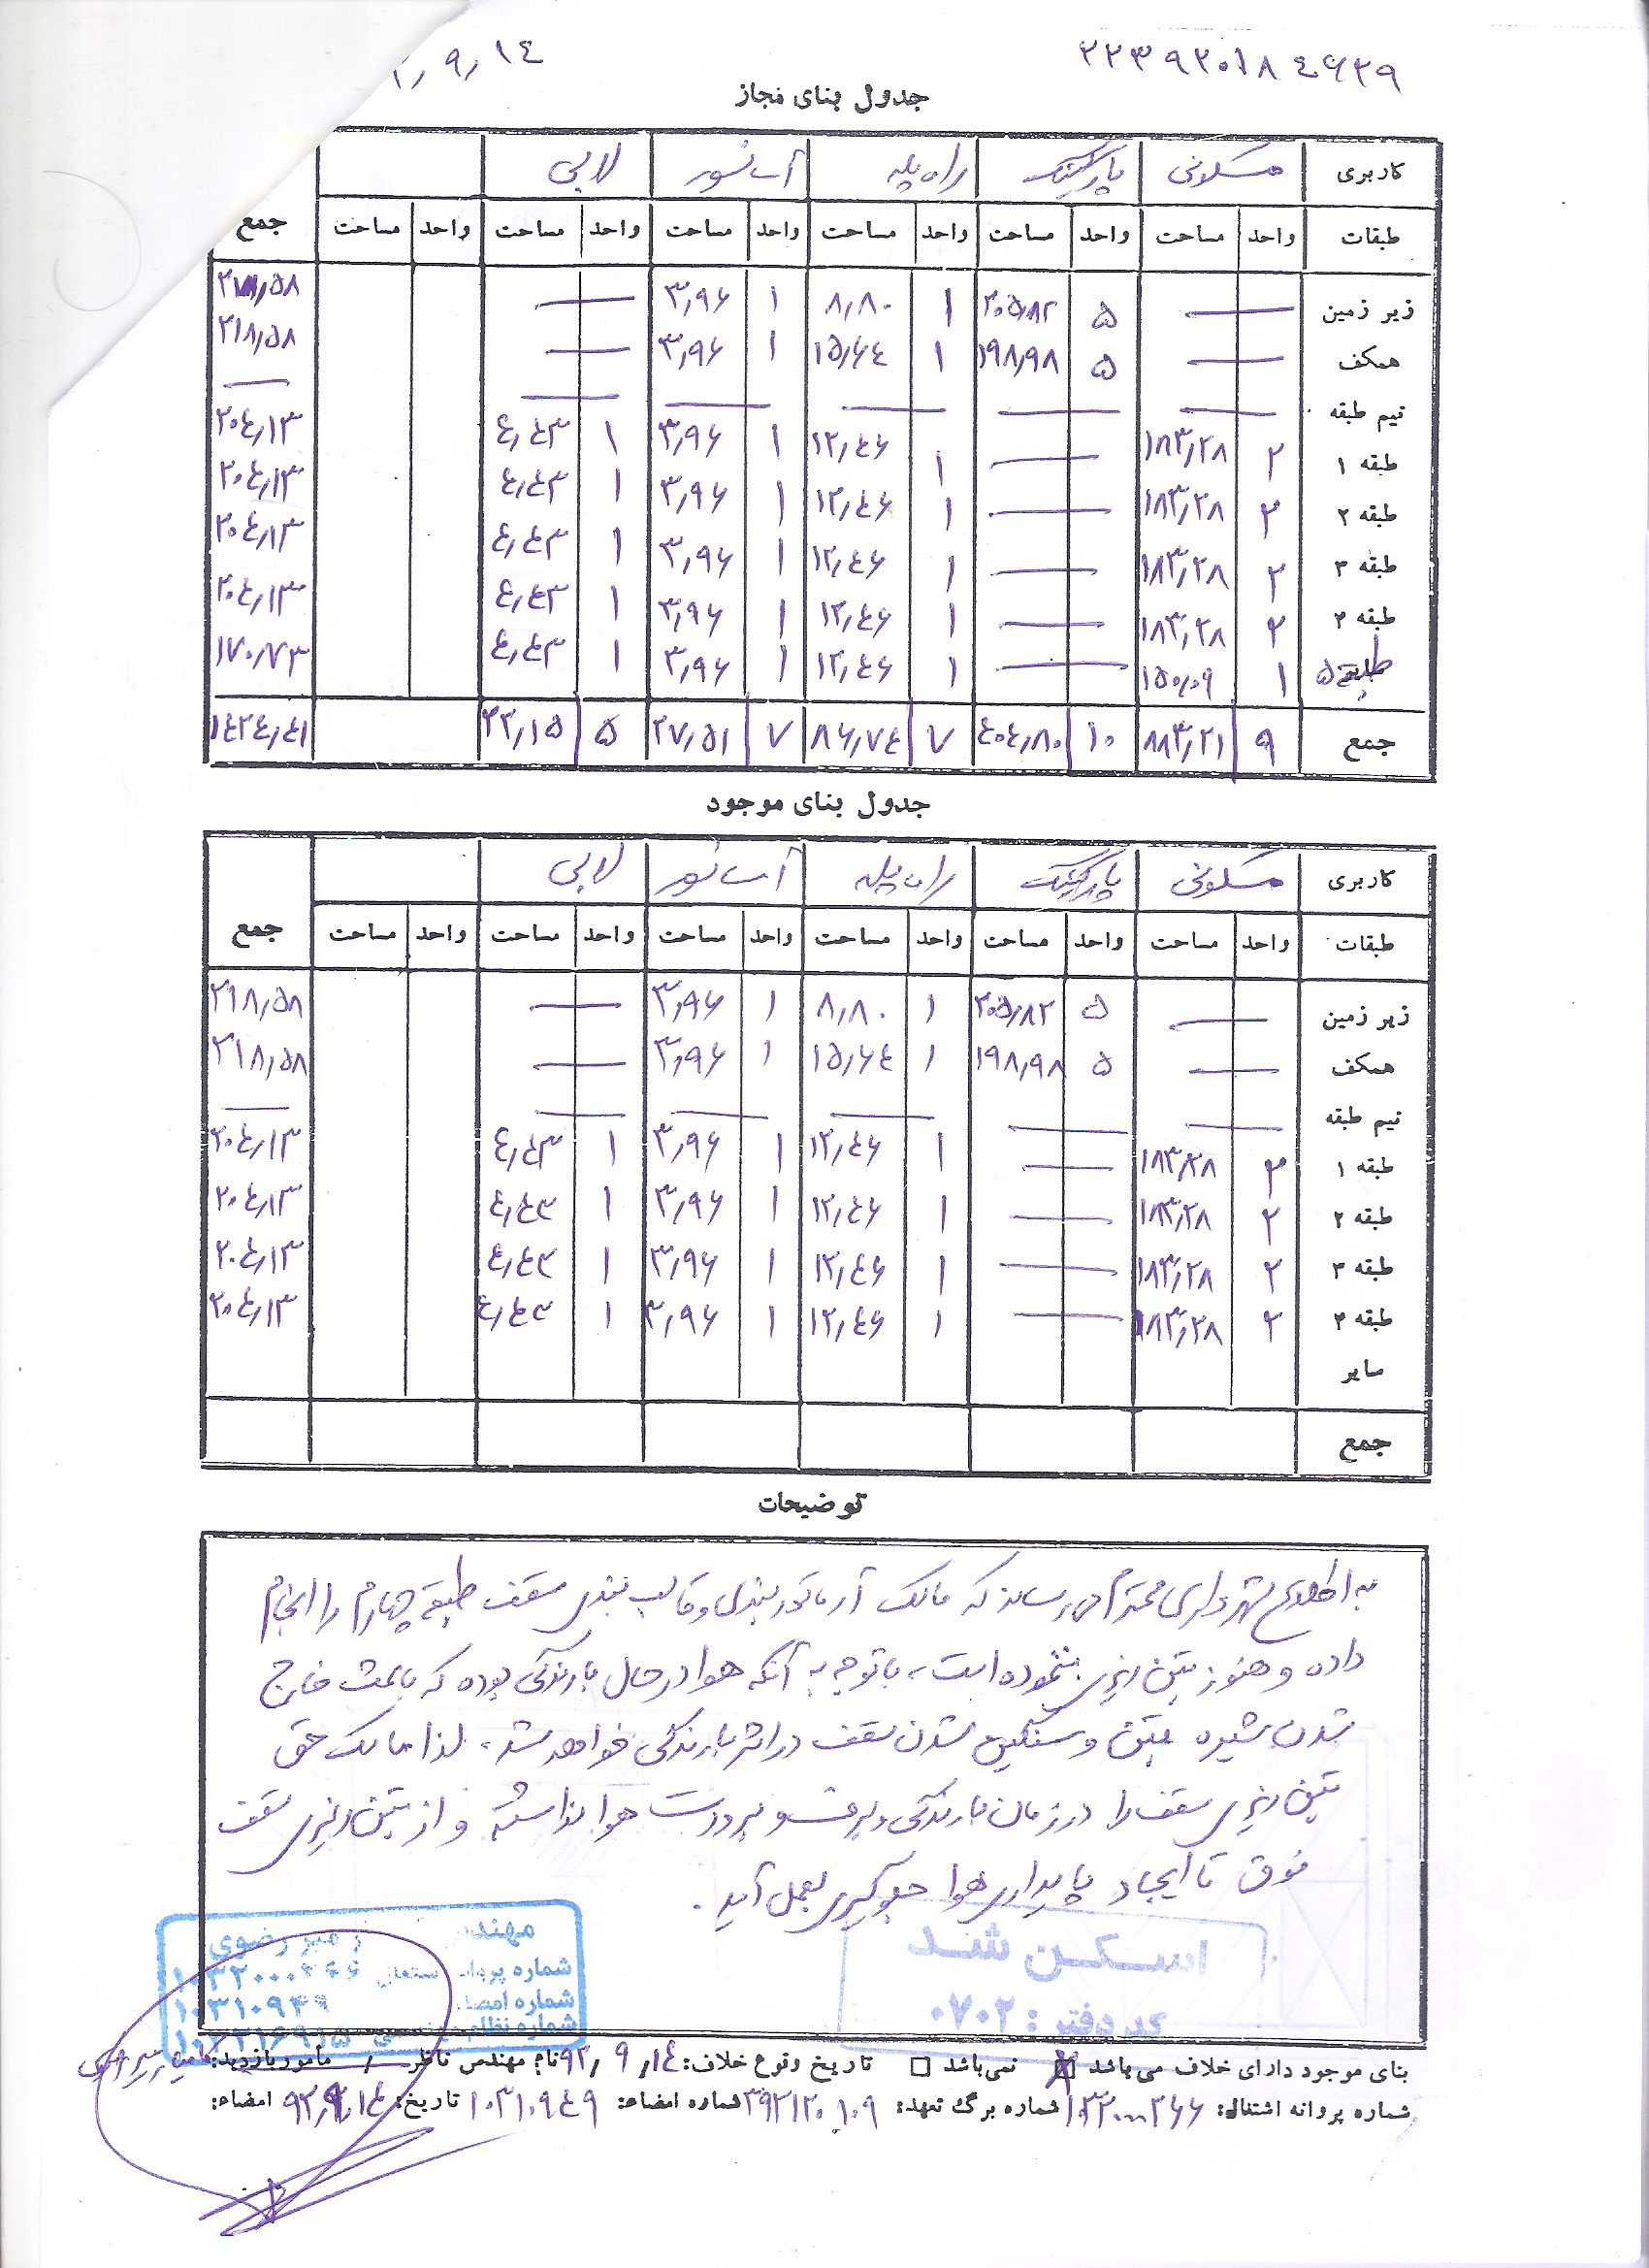 ۲۲۳۹۲۰۱۸۴۶۲۹
۹٫۱۴
جدول بنای مجاز
کاربری مسکونی پارکینگ راه پله آسانسور لابی
طبقات واحد مساحت واحد مساحت واحد مساحت واحد مساحت واحد مساحت واحد مساحت جمع
زیر زمین — ۵ ۲۰۵٫۸۲ ۱ ۸٫۸۰ ۱ ۳٫۹۶ — ۲۱۸٫۵۸
همکف — ۵ ۱۹۸٫۹۸ ۱ ۱۵٫۶۴ ۱ ۳٫۹۶ — ۲۱۸٫۵۸
نیم طبقه — — — — — —
طبقه ۱ ۲ ۱۸۳٫۲۸ — ۱ ۱۲٫۴۶ ۱ ۳٫۹۶ ۱ ۴٫۴۳ ۲۰۴٫۱۳
طبقه ۲ ۲ ۱۸۳٫۲۸ — ۱ ۱۲٫۴۶ ۱ ۳٫۹۶ ۱ ۴٫۴۳ ۲۰۴٫۱۳
طبقه ۳ ۲ ۱۸۳٫۲۸ — ۱ ۱۲٫۴۶ ۱ ۳٫۹۶ ۱ ۴٫۴۳ ۲۰۴٫۱۳
طبقه ۴ ۲ ۱۸۳٫۲۸ — ۱ ۱۲٫۴۶ ۱ ۳٫۹۶ ۱ ۴٫۴۳ ۲۰۴٫۱۳
طبقه ۵ ۱ ۱۵۰٫۰۹ — ۱ ۱۲٫۴۶ ۱ ۳٫۹۶ ۱ ۴٫۴۳ ۱۷۰٫۷۳
جمع ۹ ۸۸۳٫۲۱ ۱۰ ۴۰۴٫۸۰ ۷ ۸۶٫۷۴ ۷ ۲۷٫۵۱ ۵ ۲۲٫۱۵ ۱۴۲۴٫۴۱
جدول بنای موجود
کاربری مسکونی پارکینگ راه پله آسانسور لابی
طبقات واحد مساحت واحد مساحت واحد مساحت واحد مساحت واحد مساحت واحد مساحت جمع
زیر زمین — ۵ ۲۰۵٫۸۲ ۱ ۸٫۸۰ ۱ ۳٫۹۶ — ۲۱۸٫۵۸
همکف — ۵ ۱۹۸٫۹۸ ۱ ۱۵٫۶۴ ۱ ۳٫۹۶ — ۲۱۸٫۵۸
نیم طبقه — — — — — —
طبقه ۱ ۲ ۱۸۳٫۲۸ — ۱ ۱۲٫۴۶ ۱ ۳٫۹۶ ۱ ۴٫۴۳ ۲۰۴٫۱۳
طبقه ۲ ۲ ۱۸۳٫۲۸ — ۱ ۱۲٫۴۶ ۱ ۳٫۹۶ ۱ ۴٫۴۳ ۲۰۴٫۱۳
طبقه ۳ ۲ ۱۸۳٫۲۸ — ۱ ۱۲٫۴۶ ۱ ۳٫۹۶ ۱ ۴٫۴۳ ۲۰۴٫۱۳
طبقه ۴ ۲ ۱۸۳٫۲۸ — ۱ ۱۲٫۴۶ ۱ ۳٫۹۶ ۱ ۴٫۴۳ ۲۰۴٫۱۳
سایر
جمع
توضیحات
به اطلاع شهرداری محترم می رساند که مالک آرماتوربندی و قالب بندی سقف طبقه چهارم را انجام
داده و هنوز بتن ریزی ننموده است، با توجه به آنکه هوا در حال بارندگی بوده که باعث خارج
شدن شیره بتن و سنگین شدن سقف در اثر بارندگی خواهد شد، لذا مالک حق
بتن ریزی سقف را در زمان بارندگی و برف و برودت هوا نداشته و از بتن ریزی سقف
فوق تا ایجاد پایداری هوا جلوگیری بعمل آید.
اسکن شد
کد دفتر : ۰۷۰۲
میر رضوی
شماره پروانه اشتغال ۱۰۳۲۰۰۰۲۶۶
شماره امضاء ۱۰۳۱۰۹۴۹
شماره نظام مهندسی
بنای موجود دارای خلاف می باشد نمی باشد تاریخ وقوع خلاف: ۹۲٫۹٫۱۴ نام مهندس ناظر / مامور بازدید:
شماره پروانه اشتغال: ۱۰۳۲۰۰۰۲۶۶ شماره برگ تعهد: ۳۹۲۱۲۰۱۰۹ شماره امضاء: ۱۰۳۱۰۹۴۹ تاریخ: ۹۲٫۹٫۱۴ امضاء: